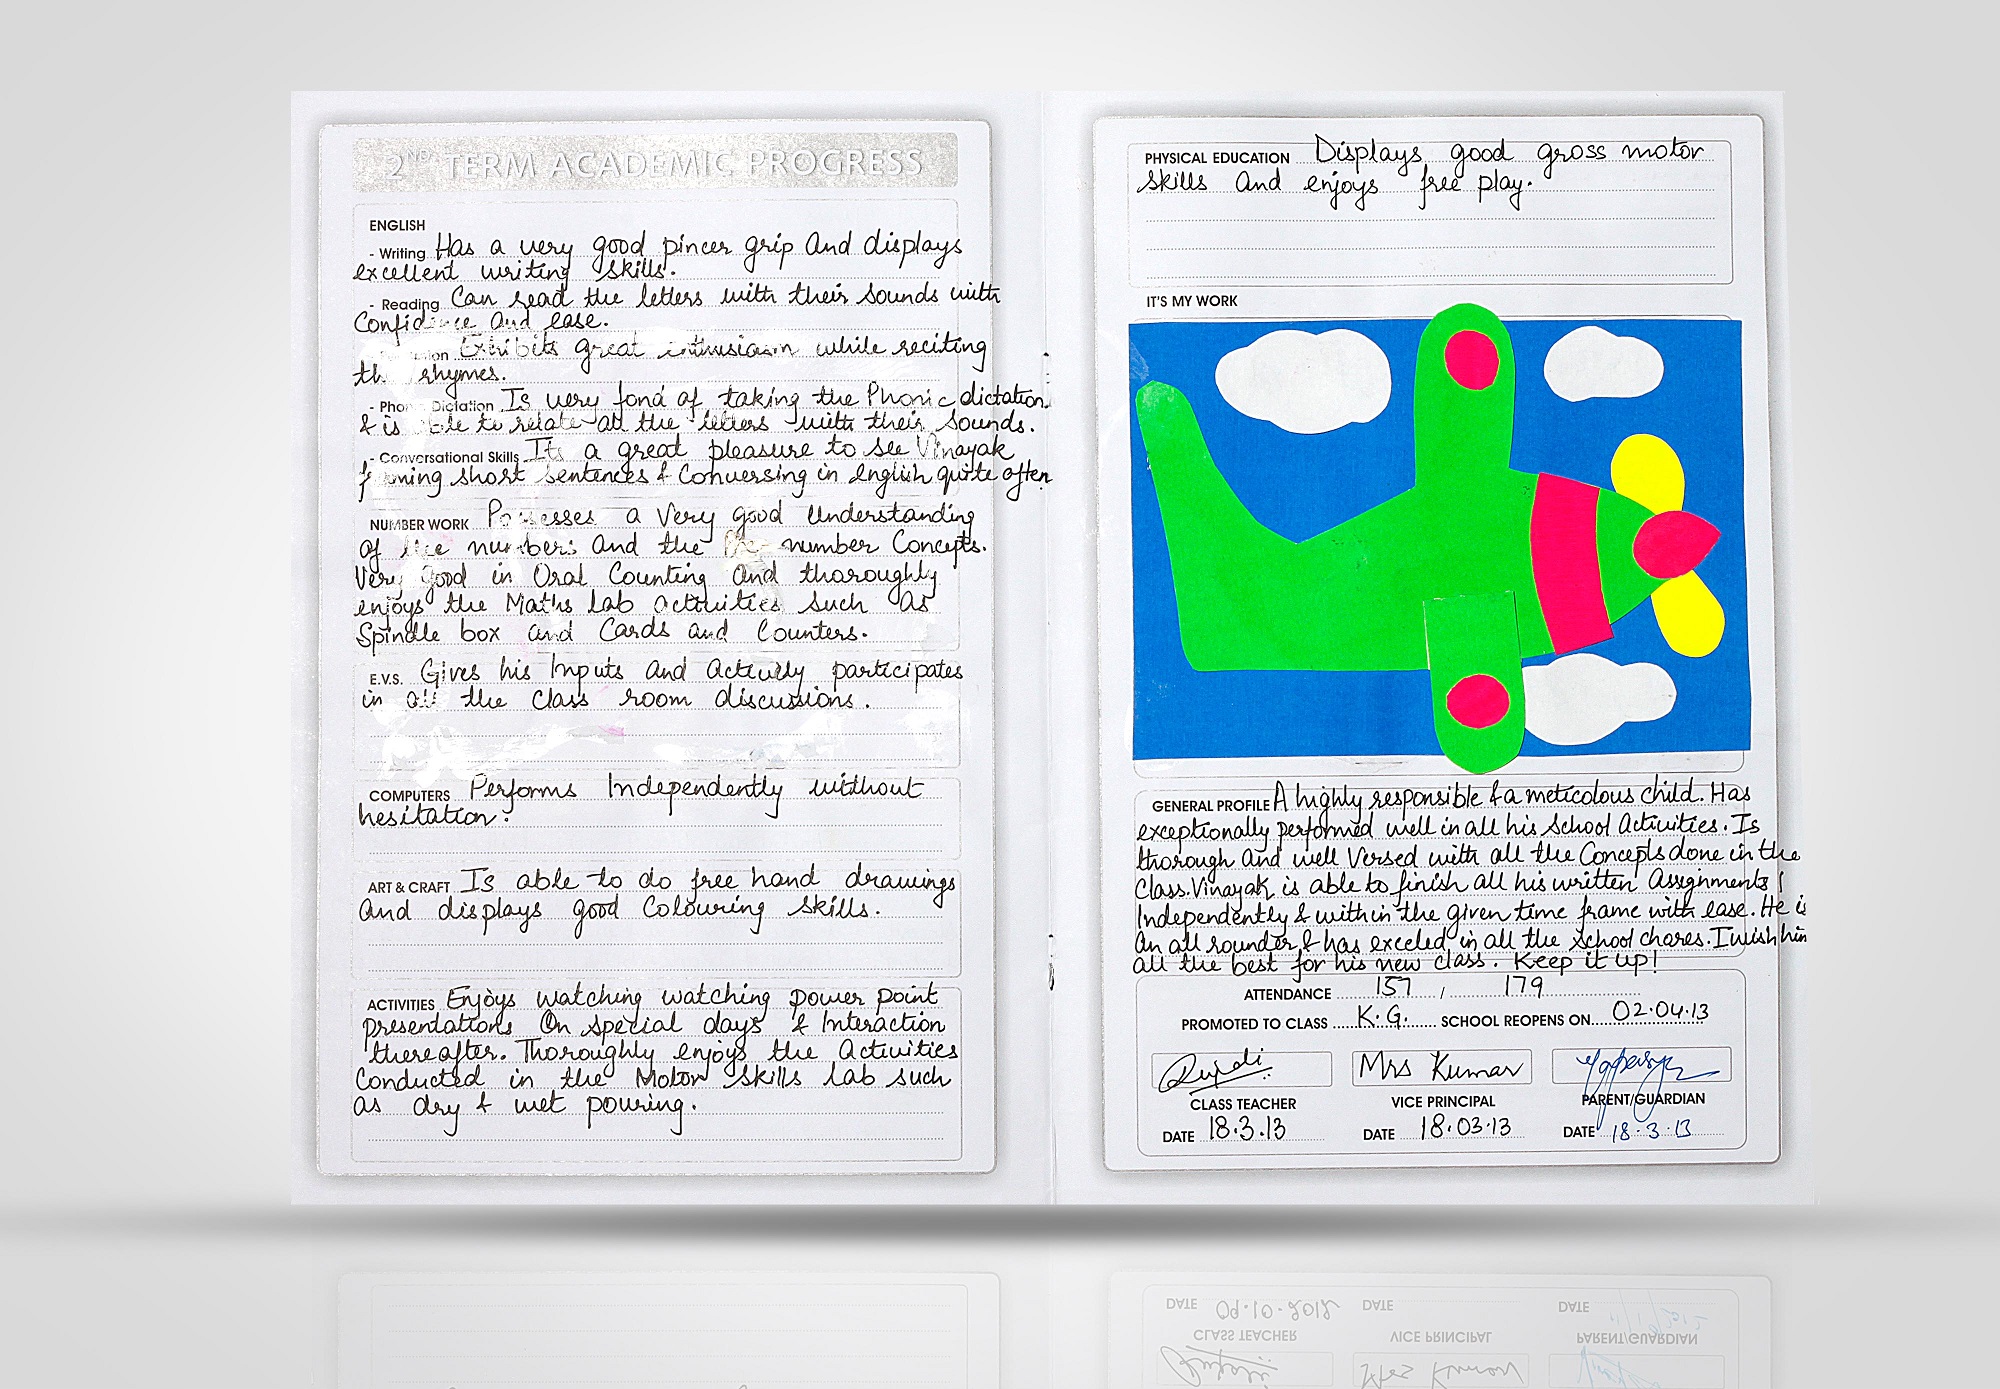 2ND TERM ACADEMIC PROGRESS
ENGLISH
- Writing Has a very good pincer grip and displays
excellent writing skills.
- Reading Can read the letters with their sounds with
Confidence and ease.
Exhibits great enthusiasm while reciting
the rhymes.
- Phonic Dictation Is very fond of taking the Phonic dictation
& is able to relate all the letters with their sounds.
- Conversational Skills Its a great pleasure to see Vinayak
forming short sentences & Conversing in english quite often
NUMBER WORK Possesses a very good Understanding
of the numbers and the Pre number Concepts.
Very good in Oral Counting and thoroughly
enjoys the Maths lab activities such as
Spindle box and Cards and Counters.
E.V.S. Gives his Inputs and actively participates
in all the class room discussions.
COMPUTERS Performs Independently without
hesitation.
ART & CRAFT Is able to do free hand drawings
and displays good Colouring skills.
ACTIVITIES Enjoys watching watching power point
presentations On special days & Interaction
thereafter. Thoroughly enjoys the Activities
Conducted in the Motor skills lab such
as dry & wet pouring.
PHYSICAL EDUCATION Displays good gross motor
skills and enjoys free play.
IT'S MY WORK
GENERAL PROFILE A highly responsible & a meticolous child. Has
exceptionally performed well in all his School Activities. Is
thorough and well Versed with all the Concepts done in the
Class. Vinayak is able to finish all his written Assignments
Independently & within the given time frame with ease. He is
an all rounder & has exceled in all the school chores. I wish him
all the best for his new class. Keep it up!
ATTENDANCE 157 / 179
PROMOTED TO CLASS K.G. SCHOOL REOPENS ON 02.04.13
Mrs Kumar
CLASS TEACHER VICE PRINCIPAL PARENT/GUARDIAN
DATE 18.3.13 DATE 18.03.13 DATE 18.3.13
DATE 09.10.2012 DATE DATE
CLASS TEACHER VICE PRINCIPAL PARENT/GUARDIAN